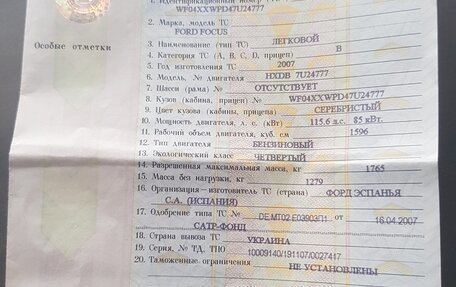 1. Идентификационный номер (VIN)
WF04XXWPD47U24777
2. Марка, модель ТС
FORD FOCUS
Особые отметки
3. Наименование (тип ТС) ЛЕГКОВОЙ
4. Категория ТС (A, B, C, D, прицеп) B
5. Год изготовления ТС 2007
6. Модель, № двигателя HXDB 7U24777
7. Шасси (рама) № ОТСУТСТВУЕТ
8. Кузов (кабина, прицеп) № WF04XXWPD47U24777
9. Цвет кузова (кабины, прицепа) СЕРЕБРИСТЫЙ
10. Мощность двигателя, л. с. (кВт) 115,6 л.с. 85 кВт.
11. Рабочий объем двигателя, куб. см 1596
12. Тип двигателя БЕНЗИНОВЫЙ
13. Экологический класс ЧЕТВЕРТЫЙ
14. Разрешенная максимальная масса, кг 1765
15. Масса без нагрузки, кг 1279
16. Организация—изготовитель ТС (страна) ФОРД ЭСПАНЬЯ
С.А. (ИСПАНИЯ)
17. Одобрение типа ТС № DE.MT02.E03903П1 от 16.04.2007
САТР-ФОНД
18. Страна вывоза ТС УКРАИНА
19. Серия, № ТД, ТПО 10009140/191107/0027417
20. Таможенные ограничения НЕ УСТАНОВЛЕНЫ